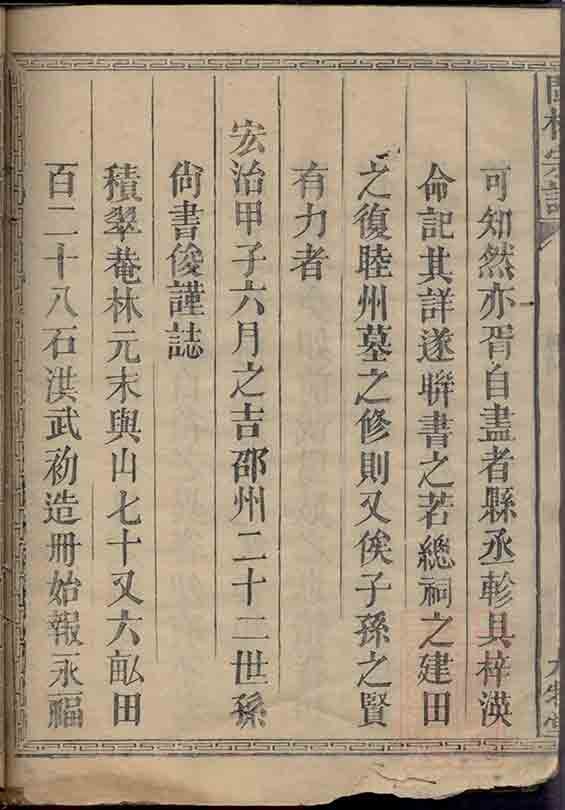 可知然亦胥自盡者縣丞軫具梓渶
命記其詳遂聨書之若總祠之建田
之復睦州墓之修則又俟子孫之賢
有力者
宏治甲子六月之吉邵州二十二世孫
尙書俊謹誌
積翠菴林元末與山七十又六畆田
百二十八石洪武初造冊始報永福